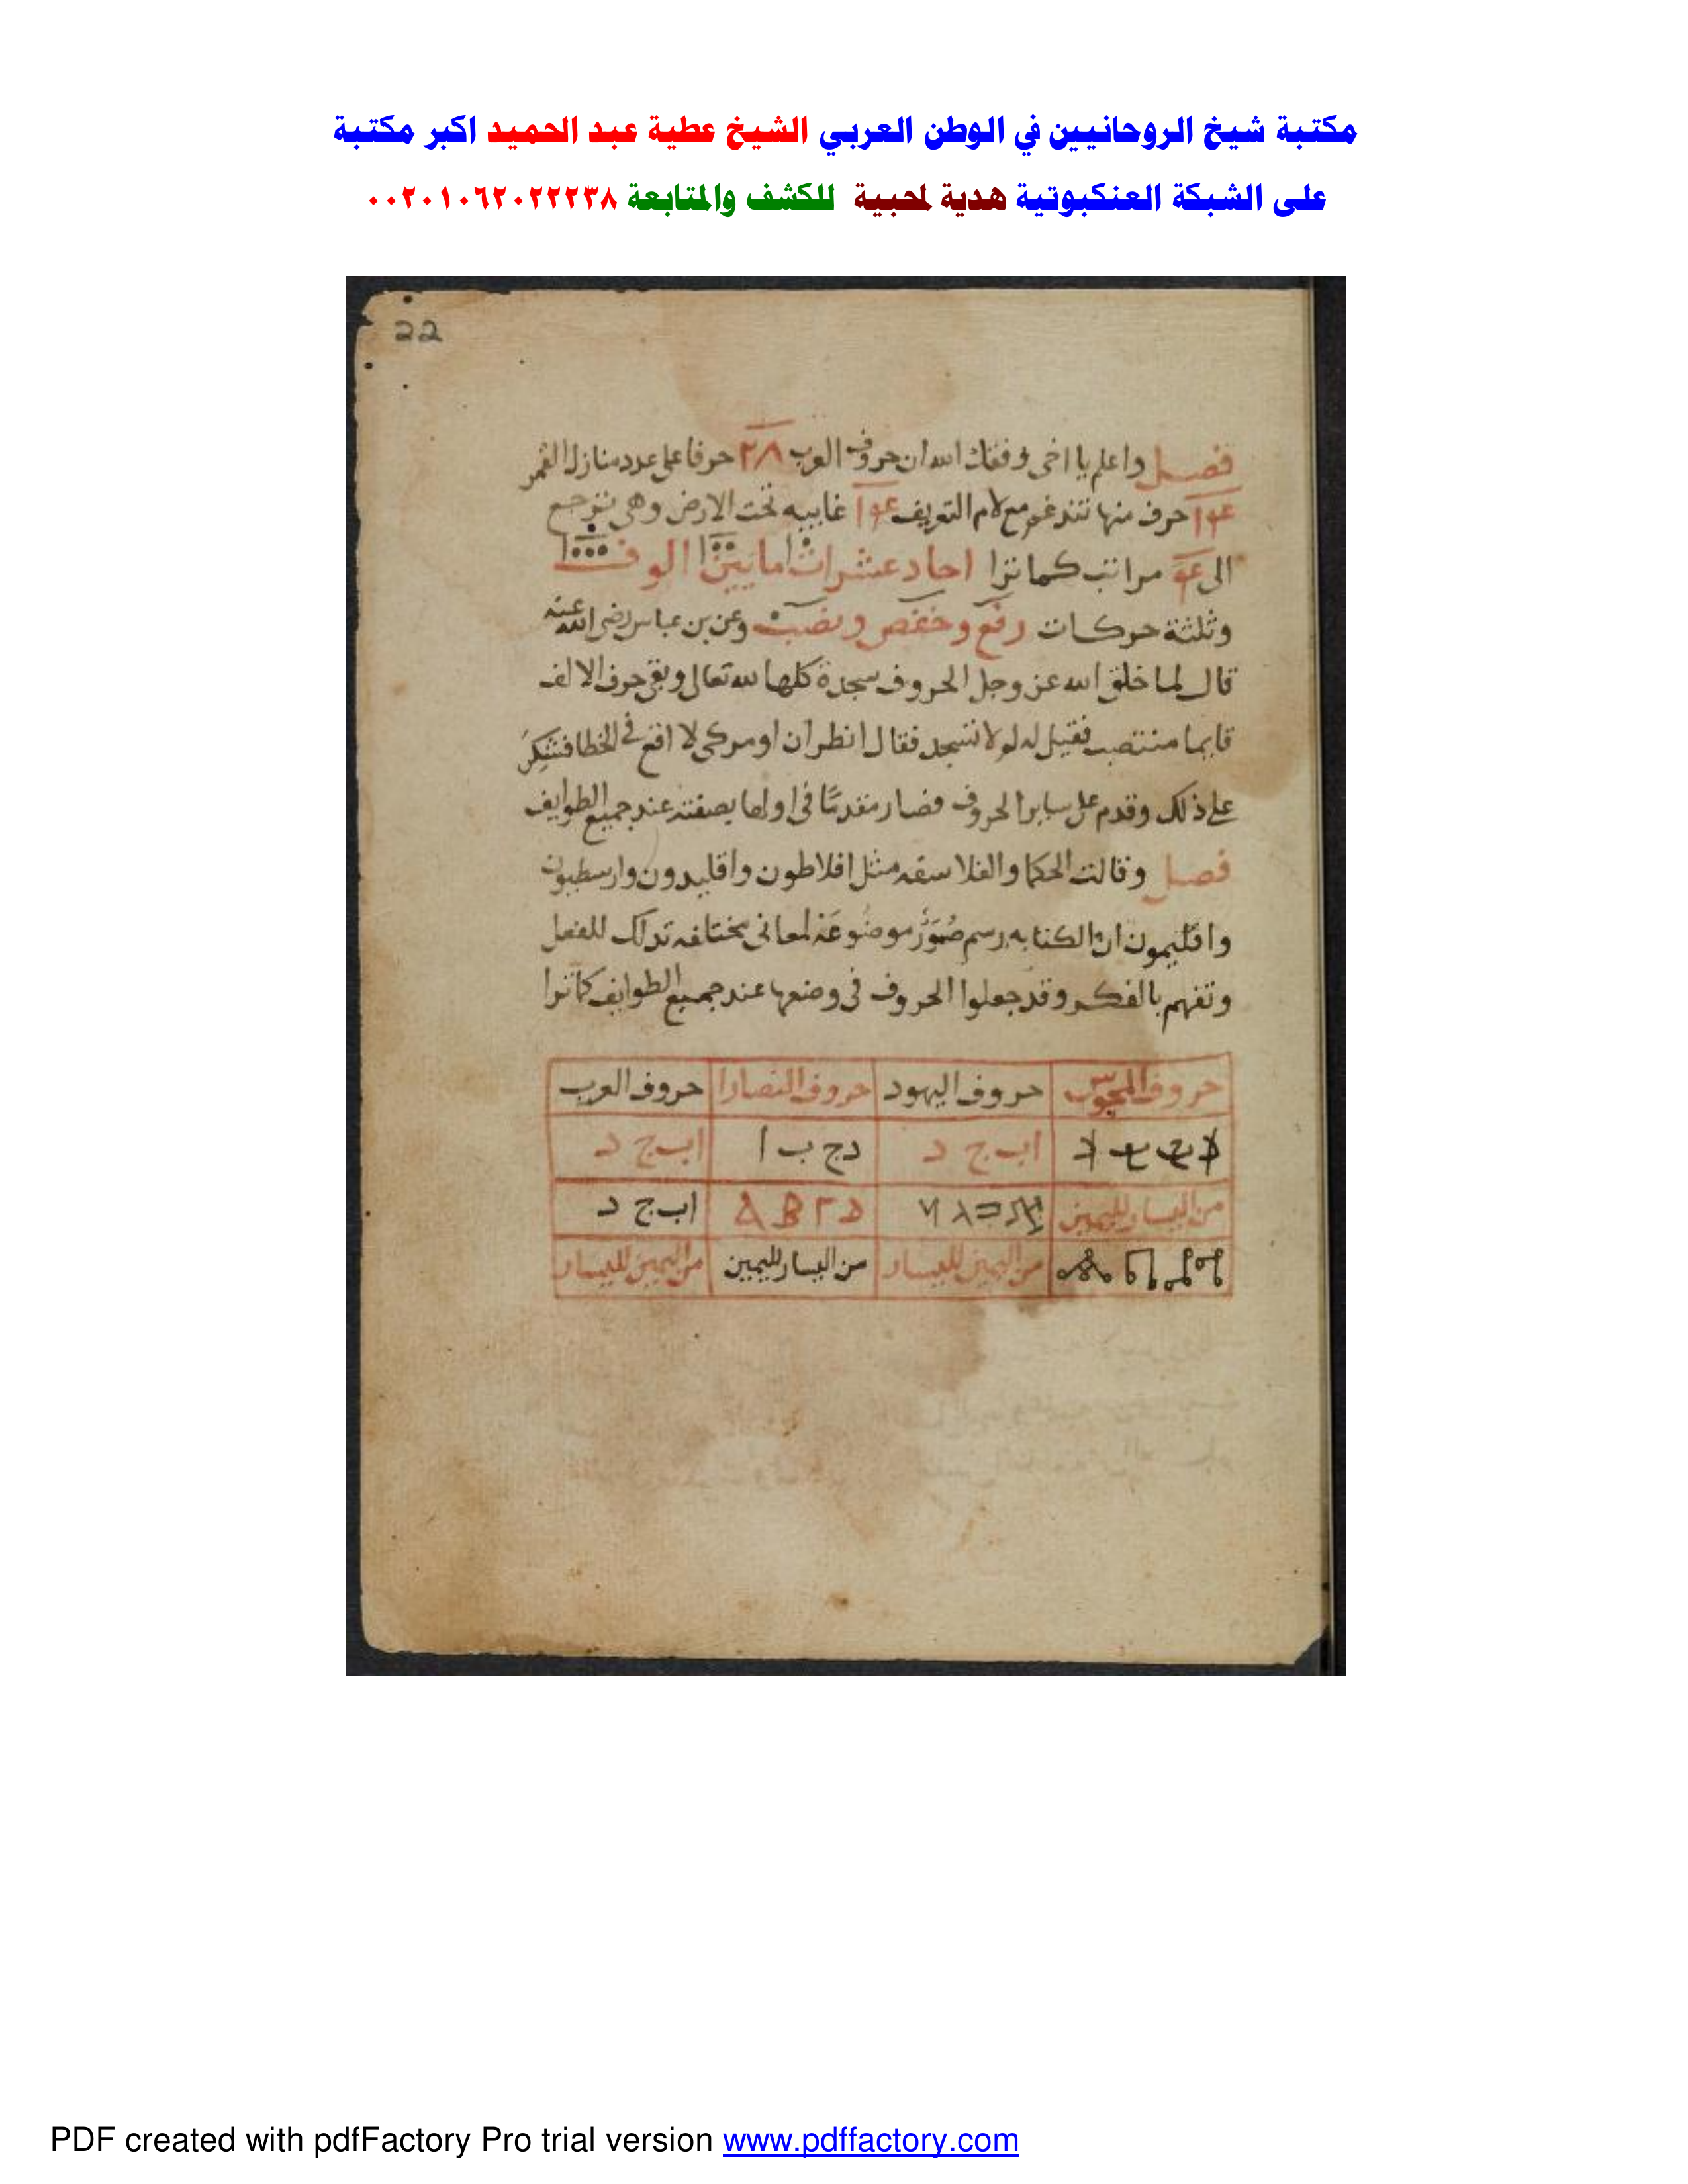 مكتبة شيخ الروحانيين في الوطن العربي الشيخ عطية عبد الحميد اكبر مكتبة
على الشبكة العنكبوتية هدية لمحبية للكشف والمتابعة ٠٠٢٠١٠٦٢٠٢٢٢٣٨
22
فصل واعلم يا اخى وفقك الله ان حروف العرب ٢٨ حرفا على عدد منازل القمر
حرف منها تندغم مع لام التعريف غايبه تحت الارض وهى ترجع
الى مراتب كما ترا احاد عشرات ما يين الوف
وثلثة حركات رفع وخفص ونصب وعن بن عباس رضى الله عنه
قال لما خلق الله عز وجل الحروف سجدة كلها لله تعالى وبقى حرف الالف
قايما منتصب فقيل له لولا تسجد فقال انظر ان اومر كى لا اقع فى الخطا فشكر
على ذلك وقدم على ساير الحروف فصار مقدما فى اولها بصفته عند جميع الطوايف
فصل وقالت الحكما والفلاسفه مثل افلاطون واقليدون وارسطبون
واقليمون ان الكتابه رسم صور موضوعة لمعانى مختلفه تدلك للفعل
وتفهم بالفكر وقد جعلوا الحروف فى وضعها عند جميع الطوايف كما ترا
حروف المجوس حروف اليهود حروف النصارا حروف العرب
اب ج د دج ب ا اب ج د
من اليسار لليمين Δ B Γ اب ج د
من اليمين لليسار من اليسار لليمين من اليمين لليسار
PDF created with pdfFactory Pro trial version www.pdffactory.com